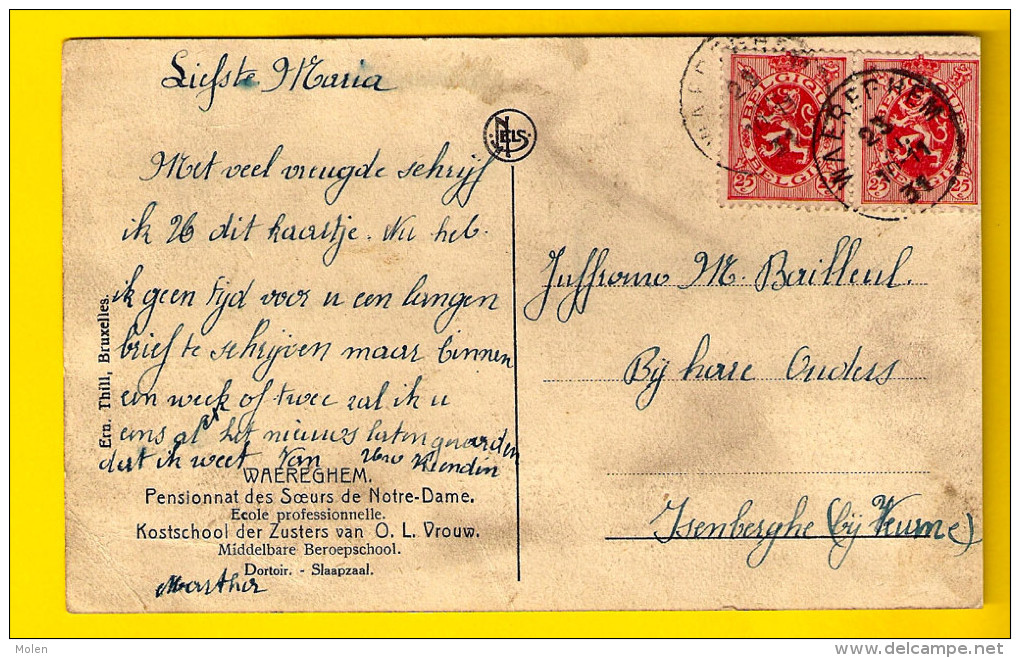 Liefste Maria
NELS
Met veel vreugde schrijf
ik U dit kaartje. Nu heb
ik geen tijd voor u een langen
brief te schrijven maar binnen
een week of twee zal ik u
eens al het nieuws laten geworden
dat ik weet Van Uw Vriendin
WAEREGHEM.
Pensionnat des Sœurs de Notre-Dame.
Ecole professionnelle.
Kostschool der Zusters van O. L. Vrouw.
Middelbare Beroepschool.
Dortoir. - Slaapzaal.
Martha
Ern. Thill, Bruxelles.
BELGIQUE
BELGIE
25 25
BELGIQUE
BELGIE
25 25
WAEREGHEM
WAEREGHEM
23
Juffrouw M. Bailleul.
Bij hare Ouders
Isenberghe (bij Veurne)
Molen
www.delcampe.net